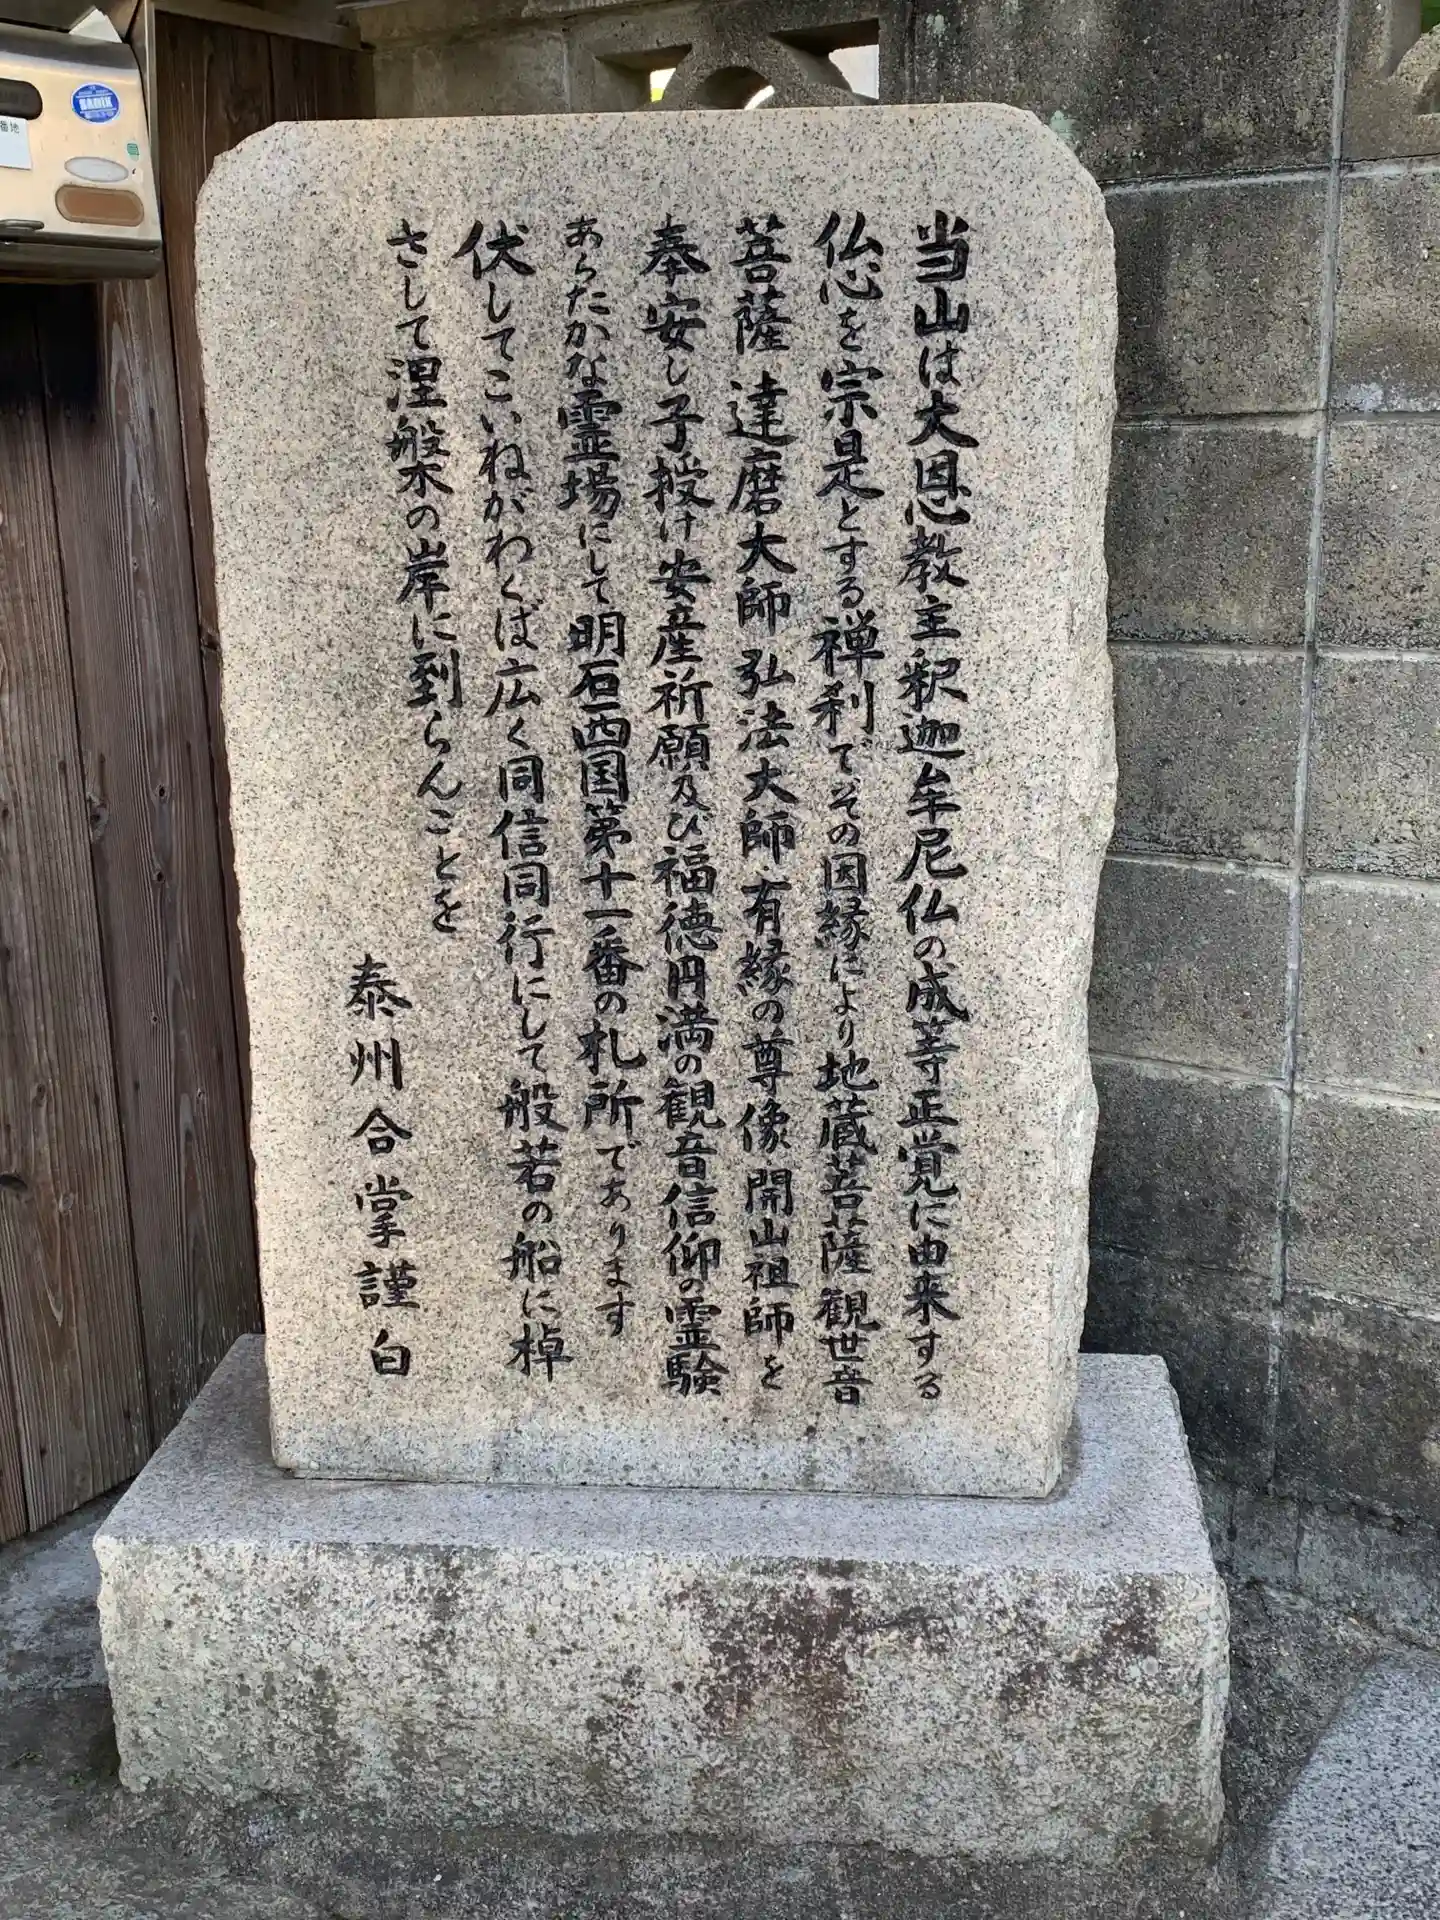 当山は大恩教主釈迦牟尼仏の成等正覚に由来する
仏心を宗是とする禅刹でその因縁により地蔵菩薩観世音
菩薩達磨大師弘法大師・有縁の尊像開山祖師を
奉安し子授け安産祈願及び福徳円満の観音信仰の霊験
あらたかな霊場にして明石西国第十一番の札所であります
伏してこいねがわくば広く同信同行にして般若の船に棹
さして涅槃の岸に到らんことを
泰州合掌謹白
番地